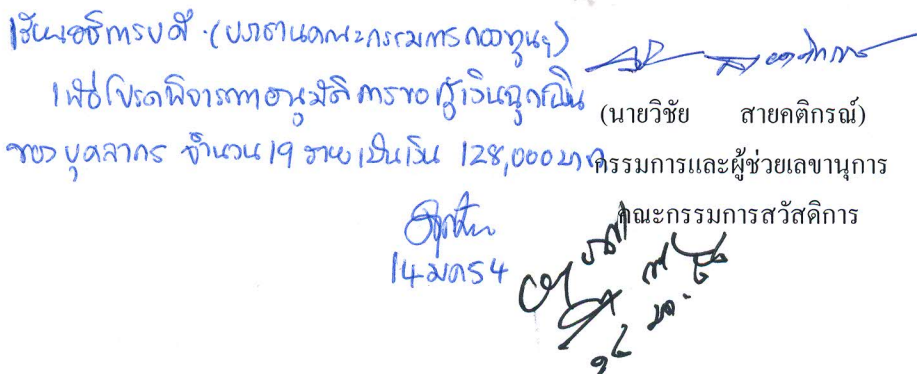 เรียนอธิการบดี (ประธานคณะกรรมการกองทุนฯ)
เพื่อโปรดพิจารณาอนุมัติการขอกู้เงินฉุกเฉิน
ของบุคลากร จำนวน 19 ราย เป็นเงิน 128,000 บาท
14 มค 54
(นายวิชัย สายคติกรณ์)
กรรมการและผู้ช่วยเลขานุการ
คณะกรรมการสวัสดิการ
อนุมัติ